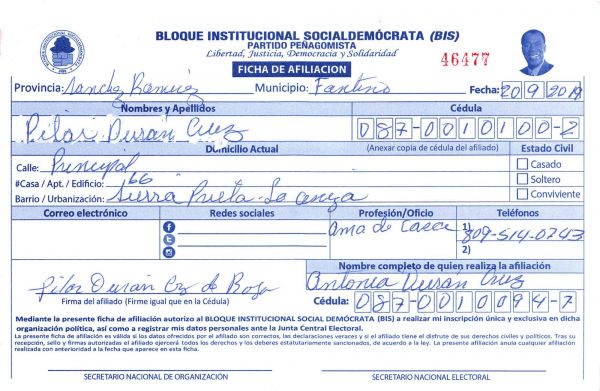 BLOQUE INSTITUCIONAL SOCIALDEMÓCRATA (BIS)
PARTIDO PEÑAGOMISTA
Libertad, Justicia, Democracia y Solidaridad
46477
FICHA DE AFILIACION
Provincia: Sanchez Ramirez Municipio: Fantino Fecha: 20 9 2019
Nombres y Apellidos Cédula
Pilar Duran Cruz 087-0010100-2
Domicilio Actual (Anexar copia de cédula del afiliado) Estado Civil
Calle: Principal Casado
#Casa / Apt. / Edificio: 66 Soltero
Barrio / Urbanización: Sierra Prieta - La Conviviente
Correo electrónico Redes sociales Profesión/Oficio Teléfonos
Ama de Casa 1) 809-514-0743
2)
Nombre completo de quien realiza la afiliación
Pilar Durán Cz de Antonia Duran Cruz
Firma del afiliado (Firme igual que en la Cédula) Cédula: 087-0010094-7
Mediante la presente ficha de afiliación autorizo al BLOQUE INSTITUCIONAL SOCIAL DEMÓCRATA (BIS) a realizar mi inscripción única y exclusiva en dicha
organización política, así como a registrar mis datos personales ante la Junta Central Electoral.
La presente ficha de afiliación es válida si los datos ofrecidos por el afiliado son correctos, las declaraciones veraces y si el afiliado tiene el disfrute de sus derechos civiles y políticos. Tras su
recepción, sello y firmas autorizadas el afiliado ejercerá todos los derechos y los deberes estatutariamente sancionados, de acuerdo a la ley. La presente afiliación anula cualquier afiliación
realizada con anterioridad a la fecha que aparece en esta ficha.
SECRETARIO NACIONAL DE ORGANIZACIÓN SECRETARIO NACIONAL ELECTORAL